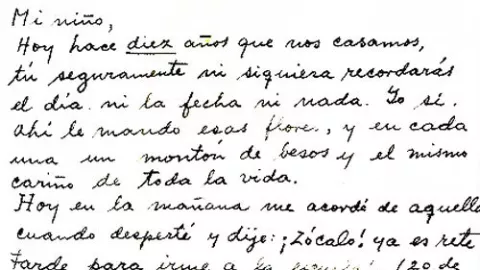 Mi niño,
Hoy hace diez años que nos casamos,
tú seguramente ni siquiera recordarás
el día ni la fecha ni nada. Yo si.
Ahí le mando esas flore., y en cada
una un montón de besos y el mismo
cariño de toda la vida.
Hoy en la mañana me acordé de aquello
cuando desperté y dije: ¡Zócalo! ya es rete
Tarde para irme a la